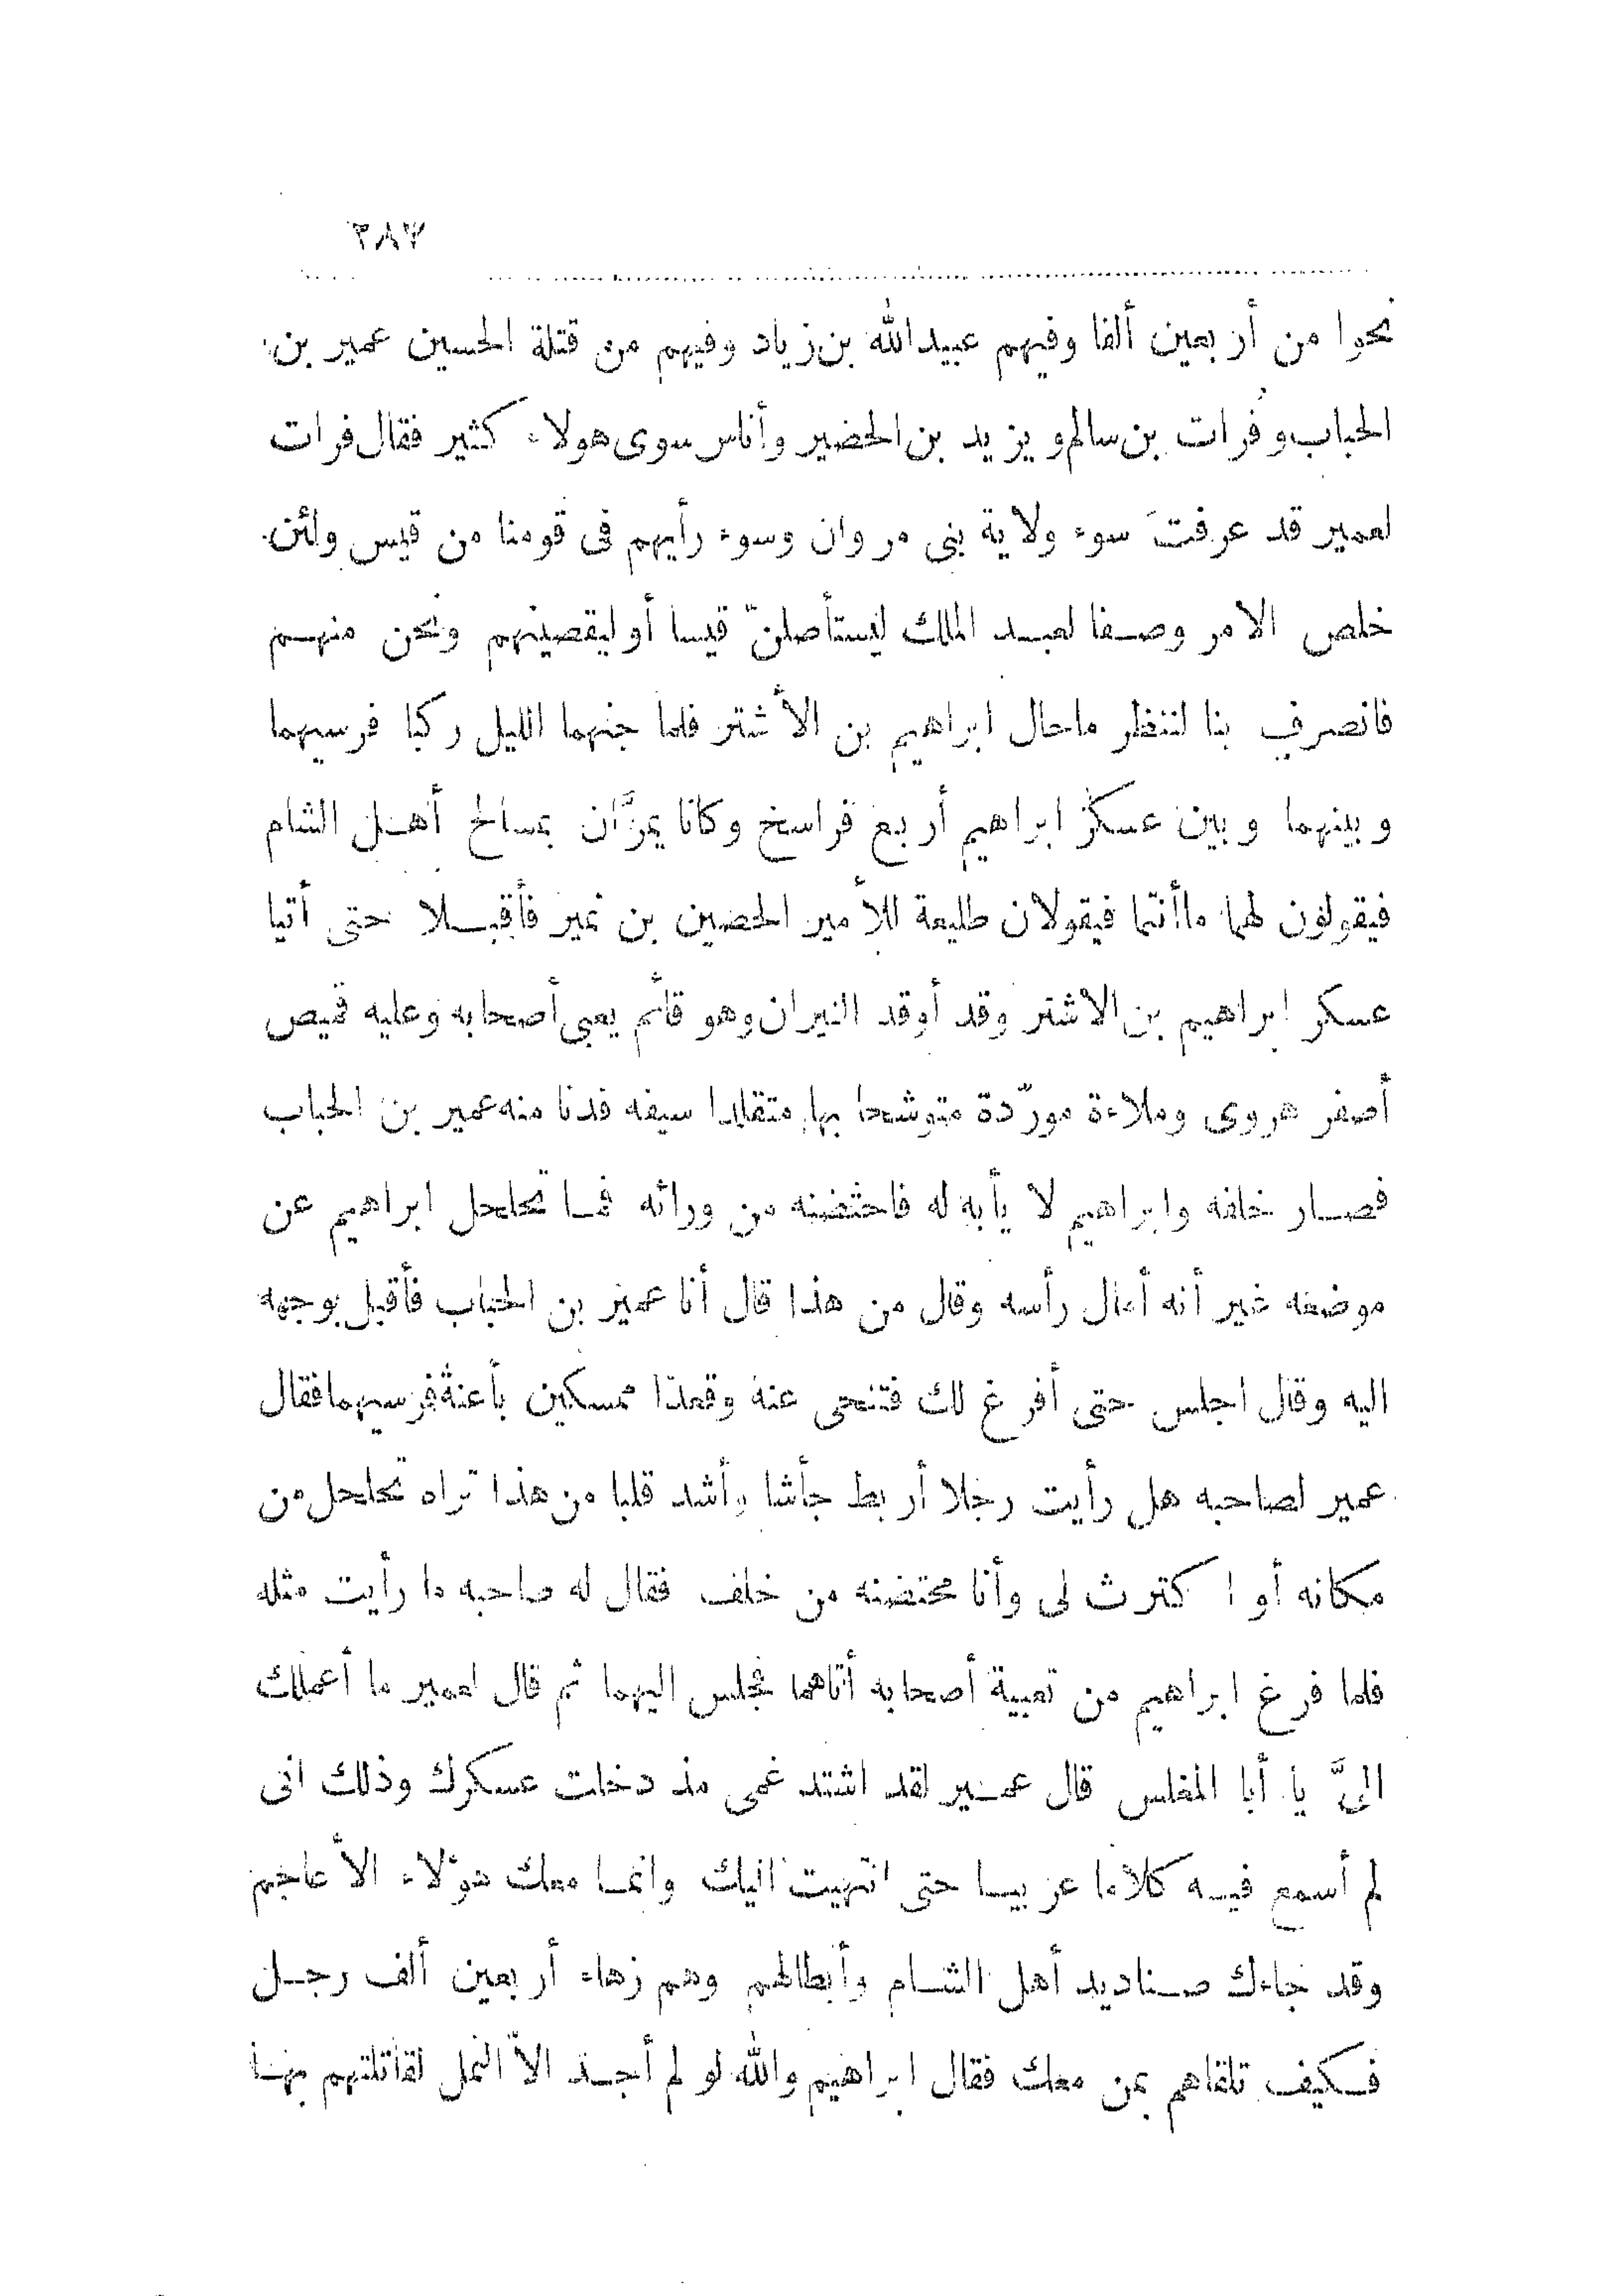 ٢٨٧
نحوا من أربعين ألفا وفيهم عبيدالله بن زياد وفيهم من قتلة الحسين عمير بن
الحباب وفرات بن سالم ويزيد بن الحضير وأناس سوى هولاء كثير فقال فرات
لعمير قد عرفتَ سوء ولاية بنى مروان وسوء رأيهم فى قومنا من قيس ولئن
خلص الامر وصفا لعبد الملك ليستأصلنّ قيسا أو ليقصينهم ونحن منهم
فانصرف بنا لننظر ماحال ابراهيم بن الأشتر فلما جنهما الليل ركبا فرسيهما
وبينهما وبين عسكر ابراهيم أربع فراسخ وكانا يمرَّان بمسالح أهل الشام
فيقولون لهما ماأنتما فيقولان طليعة للأمير الحصين بن نمير فأقبلا حتى أتيا
عسكر ابراهيم بن الاشتر وقد أوقد النيران وهو قائم يعبى أصحابه وعليه قميص
أصفر هروى وملاءة مورّدة متوشحا بها متقلدا سيفه فدنا منه عمير بن الحباب
فصار خلفه وابراهيم لا يأبه له فاحتضنه من ورائه فما تحلحل ابراهيم عن
موضعه غير أنه أمال رأسه وقال من هذا قال أنا عمير بن الحباب فأقبل بوجهه
اليه وقال اجلس حتى أفرغ لك فتنحى عنه وقعدا ممسكين بأعنة فرسيهما فقال
عمير لصاحبه هل رأيت رجلا أربط جأشا وأشد قلبا من هذا تراه تحلحل من
مكانه أو اكترث لى وأنا محتضنه من خلف فقال له صاحبه ما رأيت مثله
فلما فرغ ابراهيم من تعبية أصحابه أتاهما فجلس اليهما ثم قال لعمير ما أعملك
الىَّ يا أبا المغلس قال عمير لقد اشتد غمى مذ دخلت عسكرك وذلك انى
لم أسمع فيه كلاما عربيا حتى انتهيت اليك وانما معك هؤلاء الأعاجم
وقد جاءك صناديد أهل الشام وأبطالهم وهم زهاء أربعين ألف رجل
فكيف تلقاهم بمن معك فقال ابراهيم والله لو لم أجد الاّ النمل لقاتلتهم بها